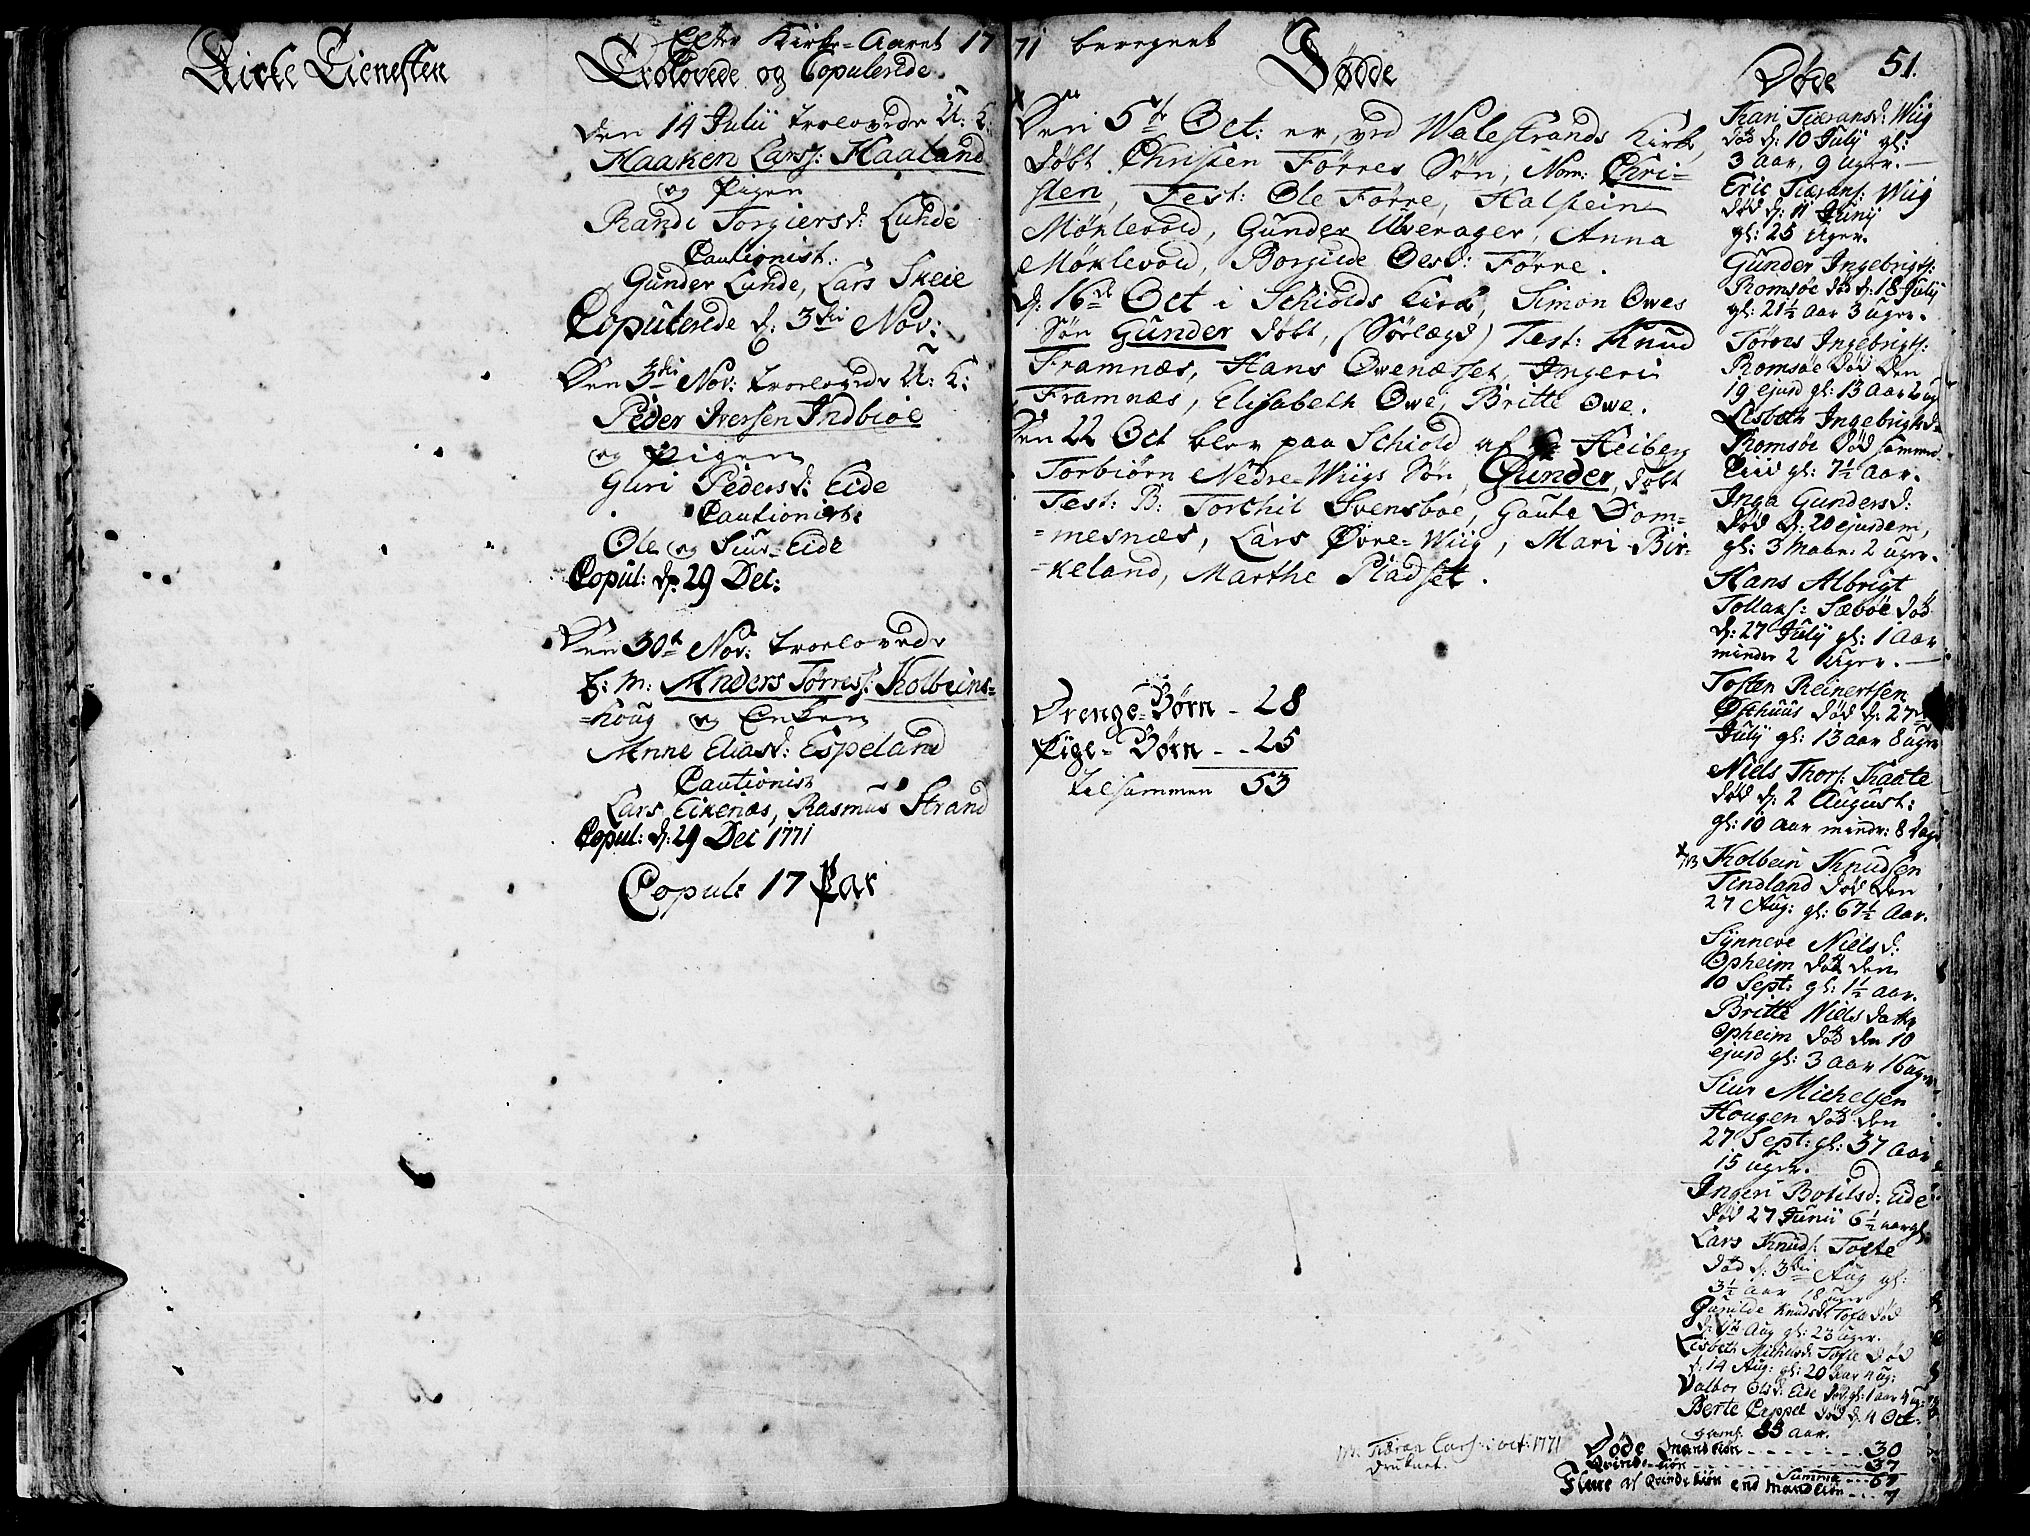 Efter Kirke-Aaret 1771 beregnet
51.
Kirke Tienesten
Trolovede og Copulerede.
Den 14 Julii trolovede U: K:
Haaken Larss: Haaland
og Pigen
Randi Torgiersd: Lunde
Cautionist:
Gunder Lunde, Lars Skeie
Copulerede d: 3die Nov:
Den 3die Nov: troelovede U: K:
Peder Iversen Indbiøe
og Pigen
Guri Pedersd: Eide
Cautionist:
Ole og Siur Eide
Copul: d: 29 Dec:
Den 30te Nov: troelovede
E: M: Anders Tørress: Kolbeins=
=houg og Enken
Anne Eliasd: Espeland
Cautionist
Lars Eikenæs, Rasmus Strand
Copul: d: 29 Dec 1771
Copul: 17 Par
Fødde
Den 5te Oct: er ved Walestrands Kirke
døbt Christen Førres Søn, Nom: Chri=
sten, Test: Ole Førre, Halstein
Møklevold, Gunder Uverager, Anna
Møklevold, Borgilde Olsd: Førre.
d: 16de Oct i Schiolds Kirke, Simon Owes
Søn Gunder døbt, (Sørlægd) Test: Knud
Framnæs, Hans Owenæsset, Ingeri
Framnæs, Elisabeth Owe, Britte Owe.
Den 22 Oct blev paa Schiold af Hr Heiberg
Torbiørn Nedre-Wiigs Søn, Gunder, døbt
Test: B: Torchil Svensbøe, Gaute Dom=
=mesnæs, Lars Øvre-Wiig, Mari Bir=
=keland, Marthe Pladset.
Drenge-Børn - 28
Pige-Børn - - 25
tilsammen 53
Døde
Kari Tiæransd: Wiig
død d: 10 July gl:
3 Aar, 9 Uger.
Eric Tiærans: Wiig
død d: 11 Junij
gl: 25 Uger.
Gunder Ingebrigts:
Romsøe død d: 18 July
gl: 21½ Aar 3 uger.
Tørres Ingebrigts:
Romsøe død den
19 ejusd gl: 13 Aar 2 ug
Lisbeth Ingebrigtsd:
Romsøe død samme
tiid gl: 7½ Aar.
Inga Gundersd:
død d: 20 ejusdem,
gl: 3 Maan: 2 uger.
Hans Albrigt
Tollaks: Sæbøe død
d: 27 July gl: 1 Aar
mindr 2 Uger.
Tosten Reinertsen
Østhuus død d: 27de
July gl: 13 aar 8 uger
Niels Thors: Kaate
død d: 2 August:
gl: 10 aar mindr: 8 dage
NB Kolbein Knudsen
Tindland død den
27 Aug: gl: 67½ Aar.
Synneve Nielsd:
Opheim død den
10 Sept: gl: 1½ aar.
Britte Niels datter
Opheim død den 10
ejusd gl: 3 Aar 16 uger
Siur Michelsen
Hougen død den
27 Sept: gl: 37 Aar
15 uger.
Ingeri Botilsd: Eide
død 27 Junii 6½ aar gl:
Lars Knuds: Tofte
død d: 3die Aug gl:
3½ aar 18 uger
Gunilde Knudsd: Tofte død
Aug gl: 23 uger.
Lisbeth Michelsd: Tofte død
d: 14 Aug: gl: 20 Aar 4 ug:
Valbor Olsd: Eide død gl: 1 aar 4 ug:
Berte Cappel død d: 4 Oct.
gaml. 85 aar.
NB. Tiæran Lars: i oct: 1771
druknet.
Døde Mandkiøn - - - - - - 30
Qvinde-kiøn - - - - - - 37
Summa - - 67
Flere af Qvindekiøn end Mandkiøn - - - 7